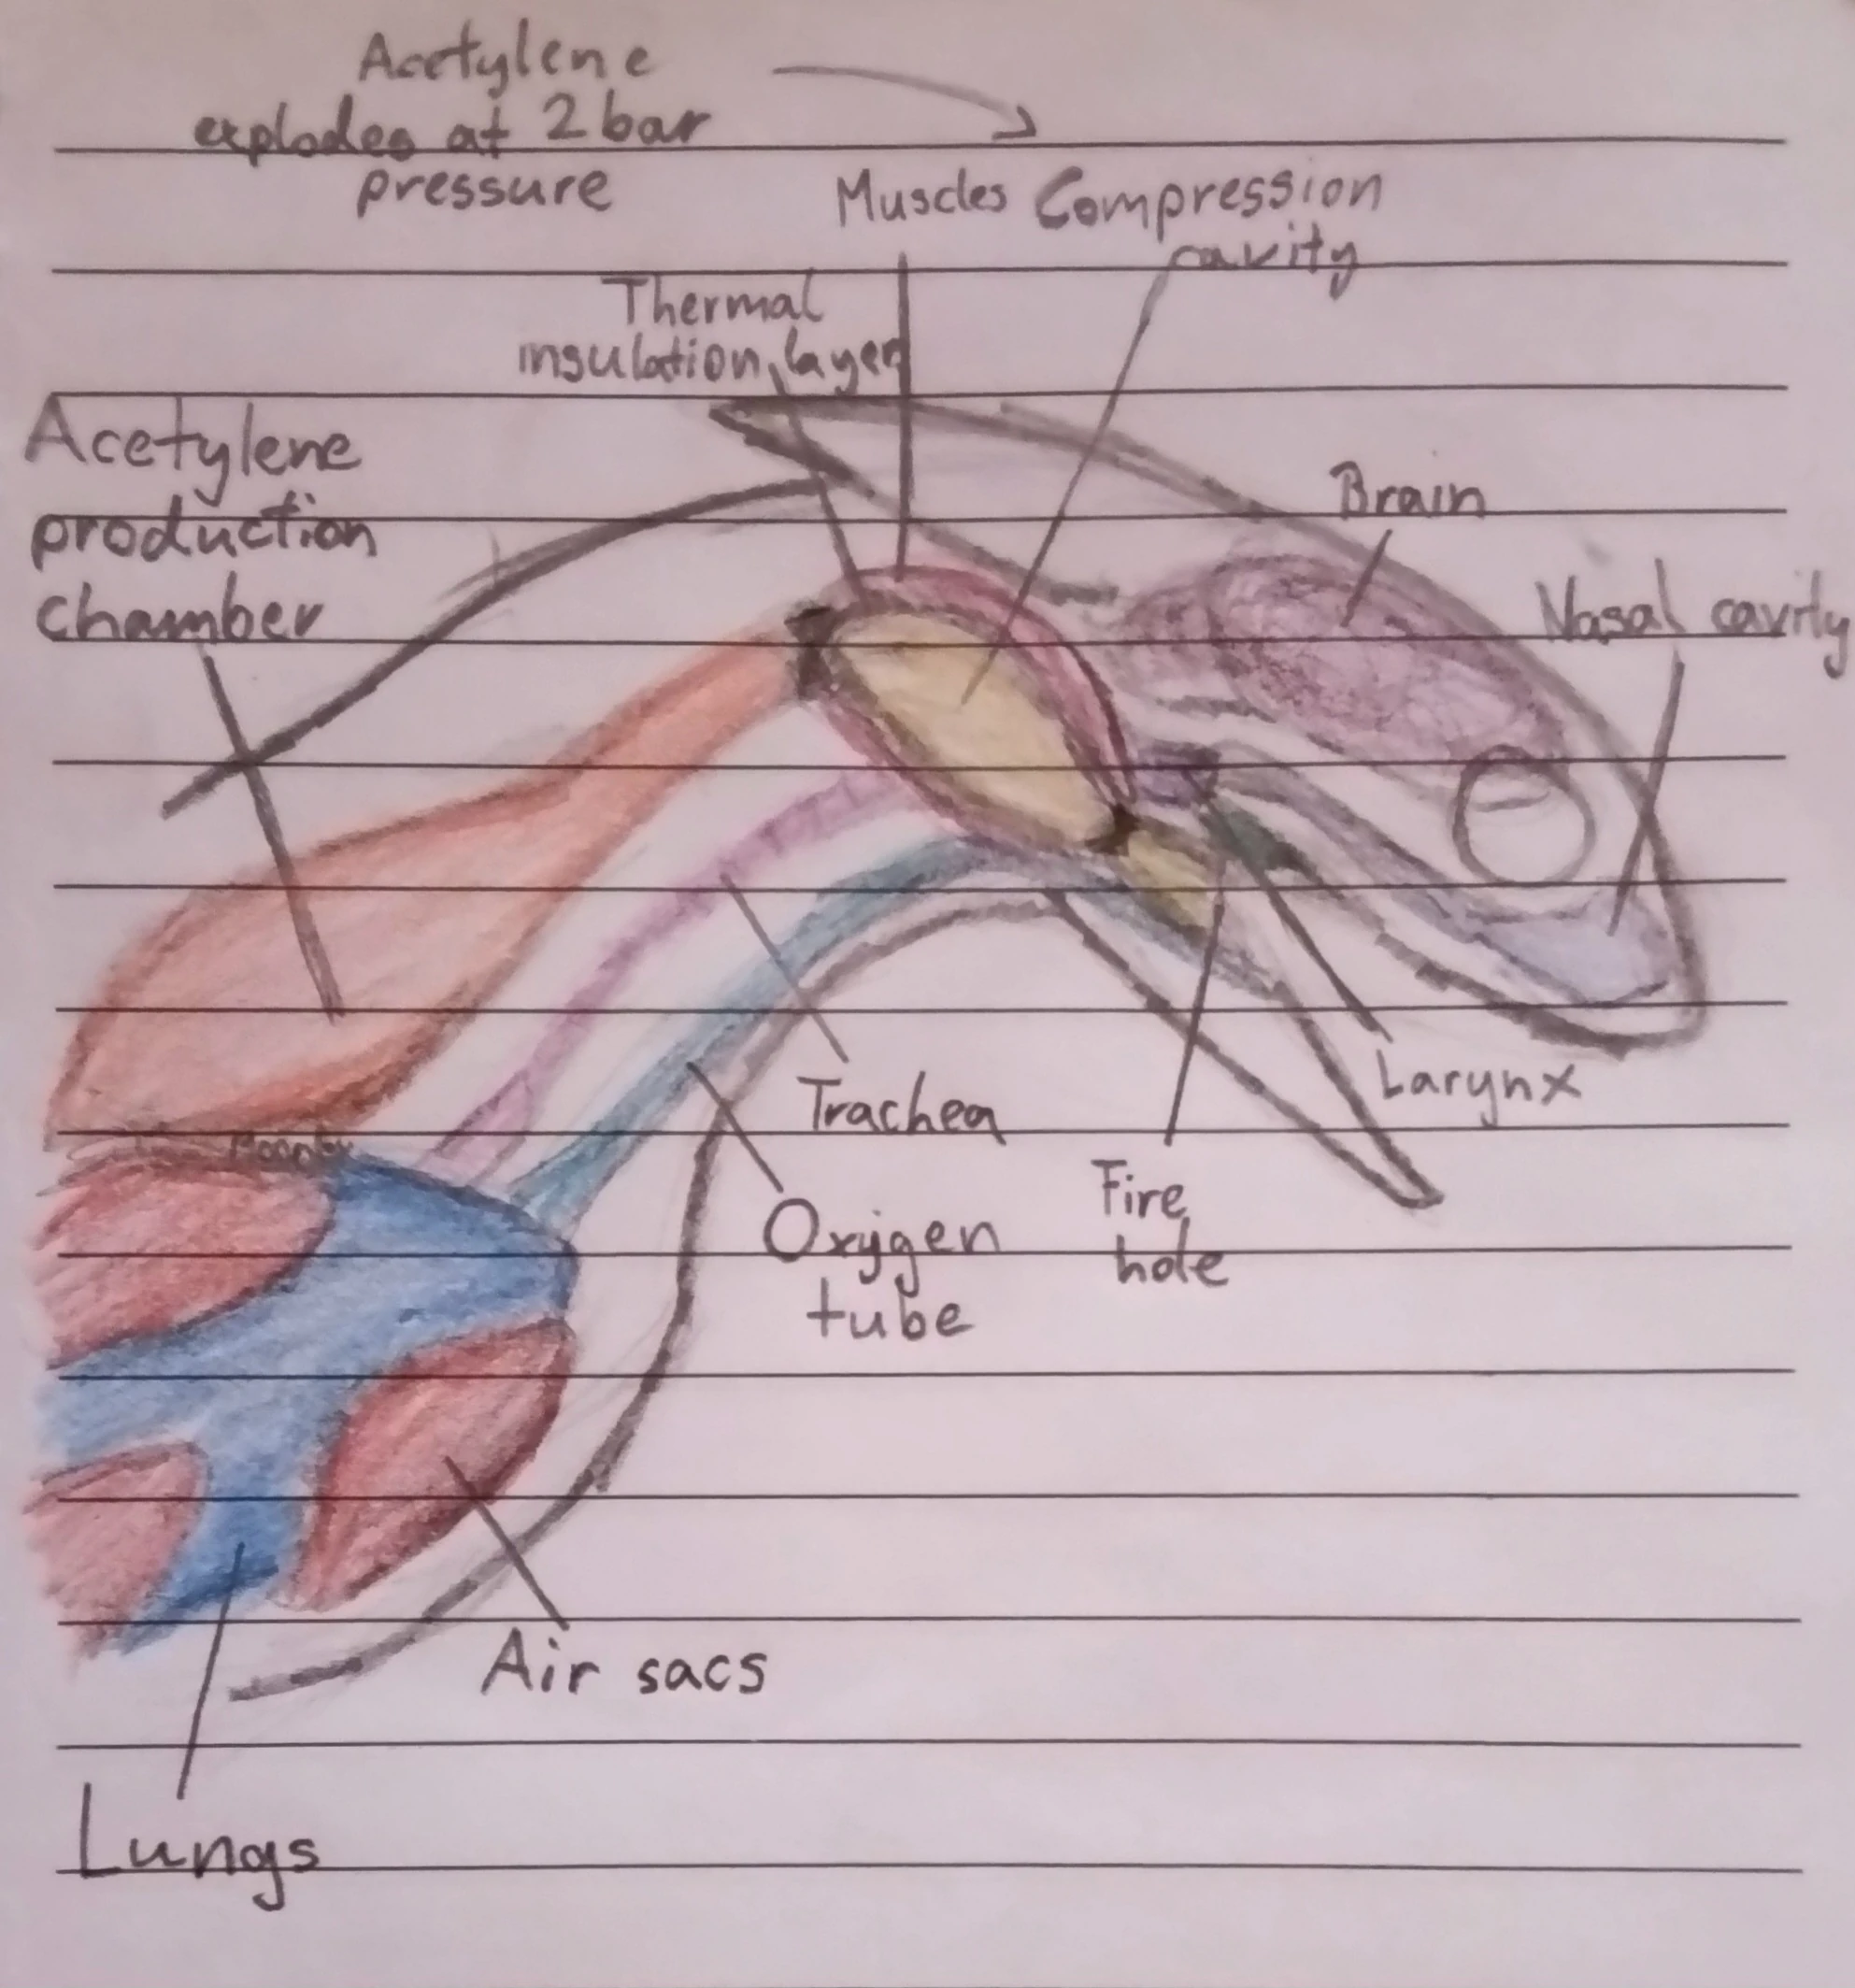 Acetylene
explodes at 2 bar
pressure
Muscles
Compression
cavity
Thermal
insulation layer
Acetylene
production
chamber
Brain
Nasal cavity
Larynx
Trachea
Fire
hole
Oxygen
tube
Air sacs
Lungs